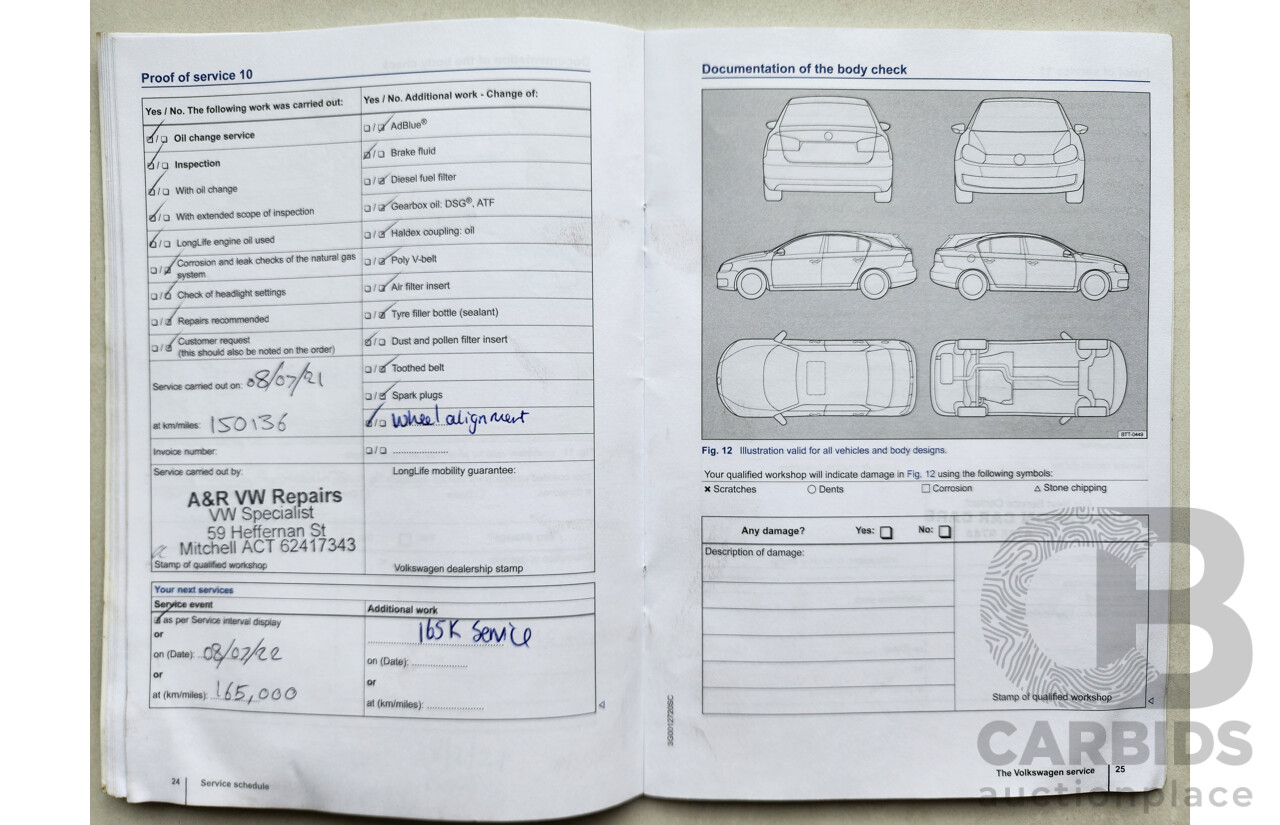 Proof of service 10
Yes / No. The following work was carried out:
Oil change service
Inspection
With oil change
With extended scope of inspection
LongLife engine oil used
Corrosion and leak checks of the natural gas
system
Check of headlight settings
Repairs recommended
Customer request
(this should also be noted on the order)
Service carried out on: 08/07/21
at km/miles: 150136
Invoice number:
Service carried out by:
A&R VW Repairs
VW Specialist
59 Heffernan St
Mitchell ACT 62417343
Stamp of qualified workshop
Yes / No. Additional work - Change of:
AdBlue®
Brake fluid
Diesel fuel filter
Gearbox oil: DSG®, ATF
Haldex coupling: oil
Poly V-belt
Air filter insert
Tyre filler bottle (sealant)
Dust and pollen filter insert
Toothed belt
Spark plugs
Wheel alignment
LongLife mobility guarantee:
Volkswagen dealership stamp
Your next services
Service event
as per Service interval display
or
on (Date): 08/07/22
or
at (km/miles): 165,000
Additional work
165K Service
on (Date):
or
at (km/miles):
24 Service schedule
Documentation of the body check
BTT-0449
Fig. 12 Illustration valid for all vehicles and body designs.
Your qualified workshop will indicate damage in Fig. 12 using the following symbols:
Scratches Dents Corrosion Stone chipping
Any damage? Yes: No:
Description of damage:
Stamp of qualified workshop
3G0012720SC
The Volkswagen service 25
CARBIDS
auctionplace